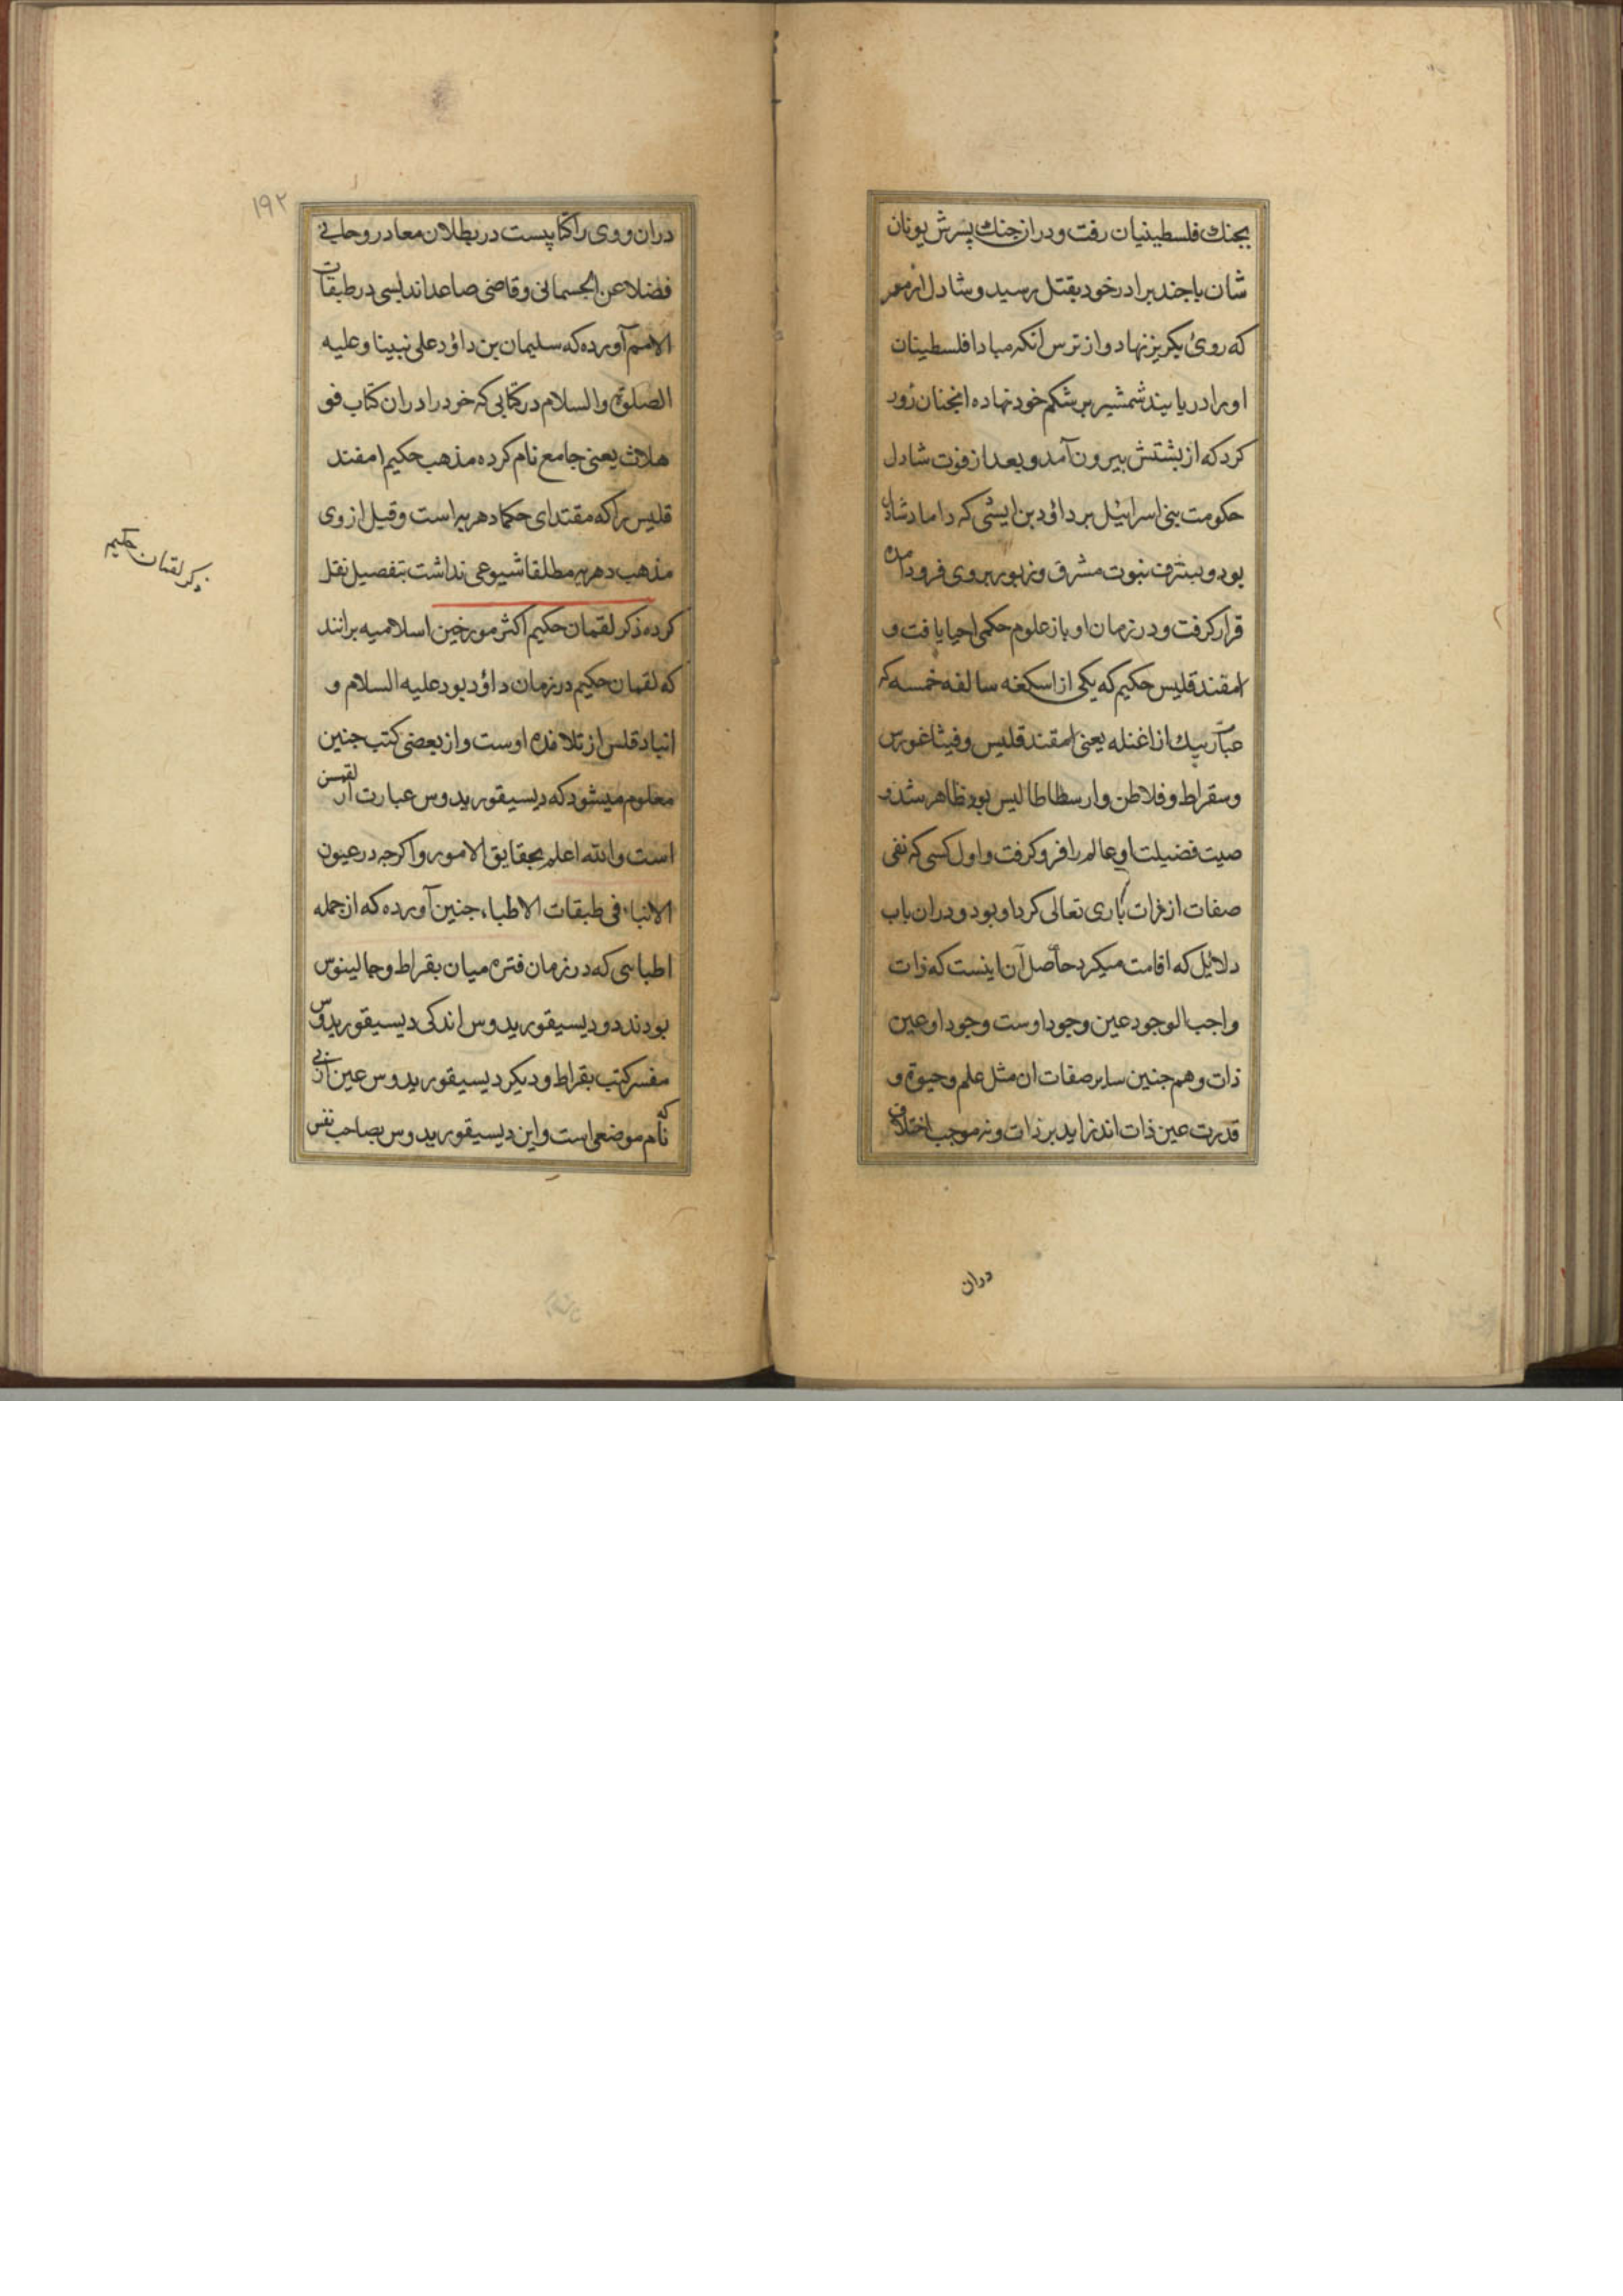 بجنك فلسطینیان رفت ودران جنك پسرش یونان
شان باجند برادر خود بقتل رسید وشادل از معر
که روی بکریز نهاد واز ترس انکه مبادا فلسطینان
اورا دریابند شمشیر بر شکم خود نهاده انجنان زور
کرد که از بشتش بیرون آمد وبعد از فوت شادل
حکومت بنی اسرائیل بر داؤد بن ایشی که داماد شادل
بود وبشرف نبوت مشرف وزبور بروی فرود آمده
قرار کرفت ودر زمان او باز علوم حکمی احیا یافت و
امقند قلیس حکیم که یکی از اسکغنه سالفه خمسه که
عبارتیك از اغنله یعنی امقند قلیس وفیثاغورس
وسقراط وفلاطن وارسطاطالیس بود ظاهر شد و
صیت فضیلت او عالم را فرو کرفت واول کسی که نفی
صفات از ذات باری تعالی کرد او بود ودران باب
دلایل که اقامت میکرد حاصل آن اینست که ذات
واجب الوجود عین وجود اوست وجود او عین
ذات وهم جنین سایر صفات ان مثل علم وحیوة و
قدرت عین ذات اند نه زاید بر ذات ونه موجب اختلاف
دران
۱۹۲
دران ووی را کتابیست در بطلان معاد روحانی
فضلا عن الجسمانی وقاضی صاعد اندلسی در طبقات
الامم آورده که سلیمان بن داؤد علی نبینا وعلیه
الصلوة والسلام در کتابی که خود را دران کتاب فو
هلاث یعنی جامع نام کرده مذهب حکیم امفند
قلیس را که مقتدای حکما دهریه است وقبل از وی
مذهب دهریه مطلقا شیوعی نداشت بتفصیل نقل
کرده ذکر لقمان حکیم اکثر مورخین اسلامیه برانند
که لقمان حکیم در زمان داؤد بود علیه السلام و
انباد قلس از تلامذه اوست واز بعضی کتب جنین
معلوم میشود که دیسیقوریدوس عبارت از لقمن
است والله اعلم بحقایق الامور واکرجه در عیون
الانباء فی طبقات الاطباء جنین آورده که از جمله
اطباسی که در زمان فتره میان بقراط وجالینوس
بودند دو دیسیقوریدوس اند یکی دیسیقوریدوس
مفسر کتب بقراط ودیکر دیسیقوریدوس عین
که نام موضعی است واین دیسیقوریدوس بصاحب نفس
ذکر لقمان حکیم